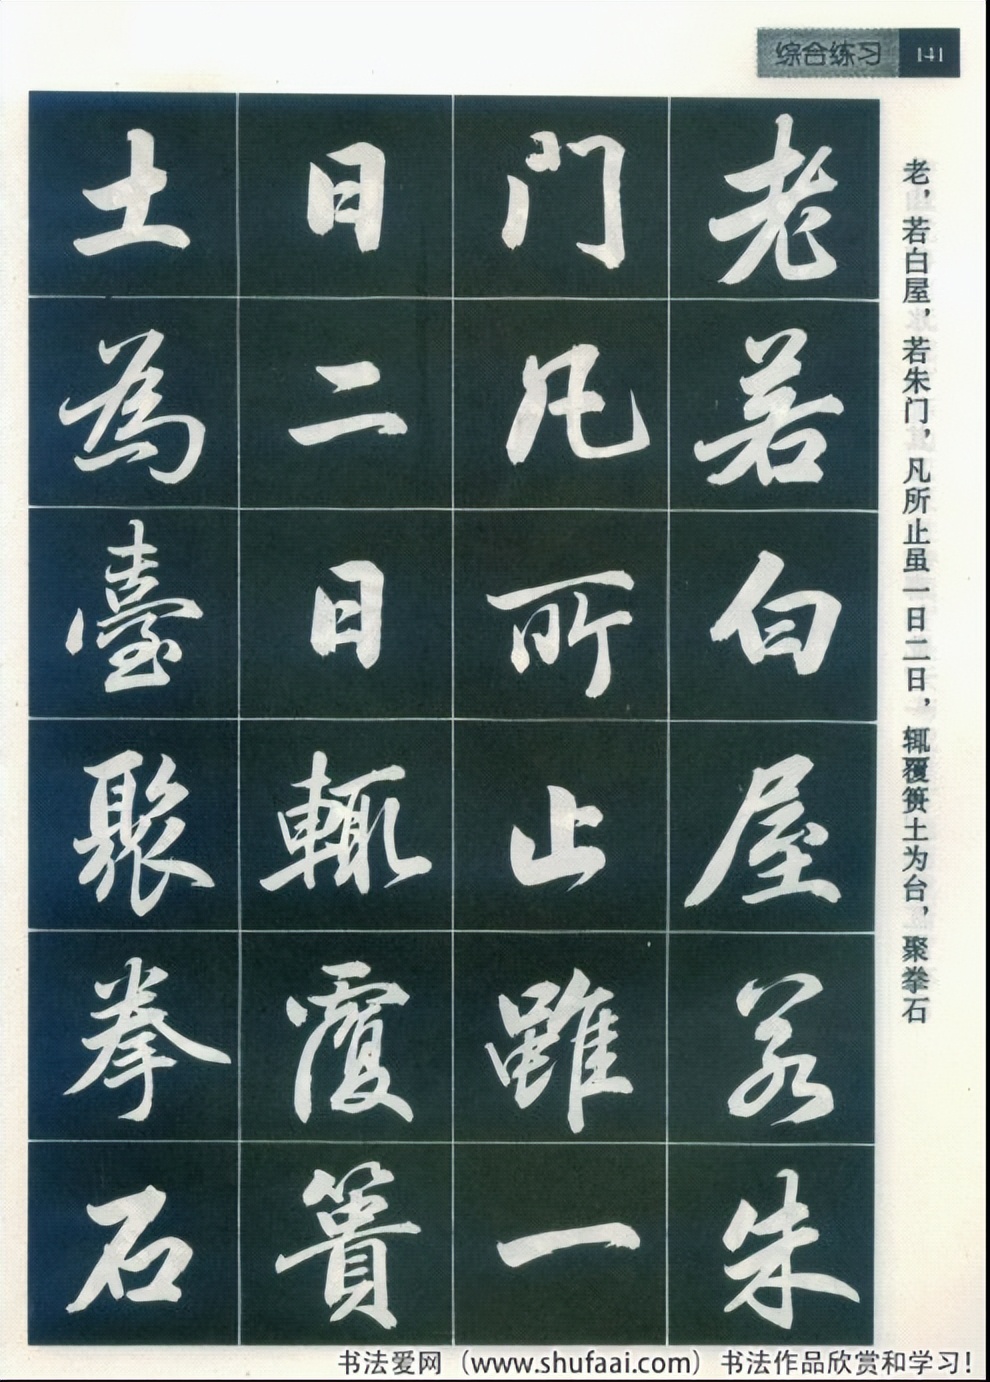 综合练习 141
老，若白屋，若朱门，凡所止虽一日二日，辄覆篑土为台，聚拳石
老若白屋若朱
门凡所止雖一
日二日輒覆簣
土為臺聚拳石
书法爱网（www.shufaai.com）书法作品欣赏和学习！